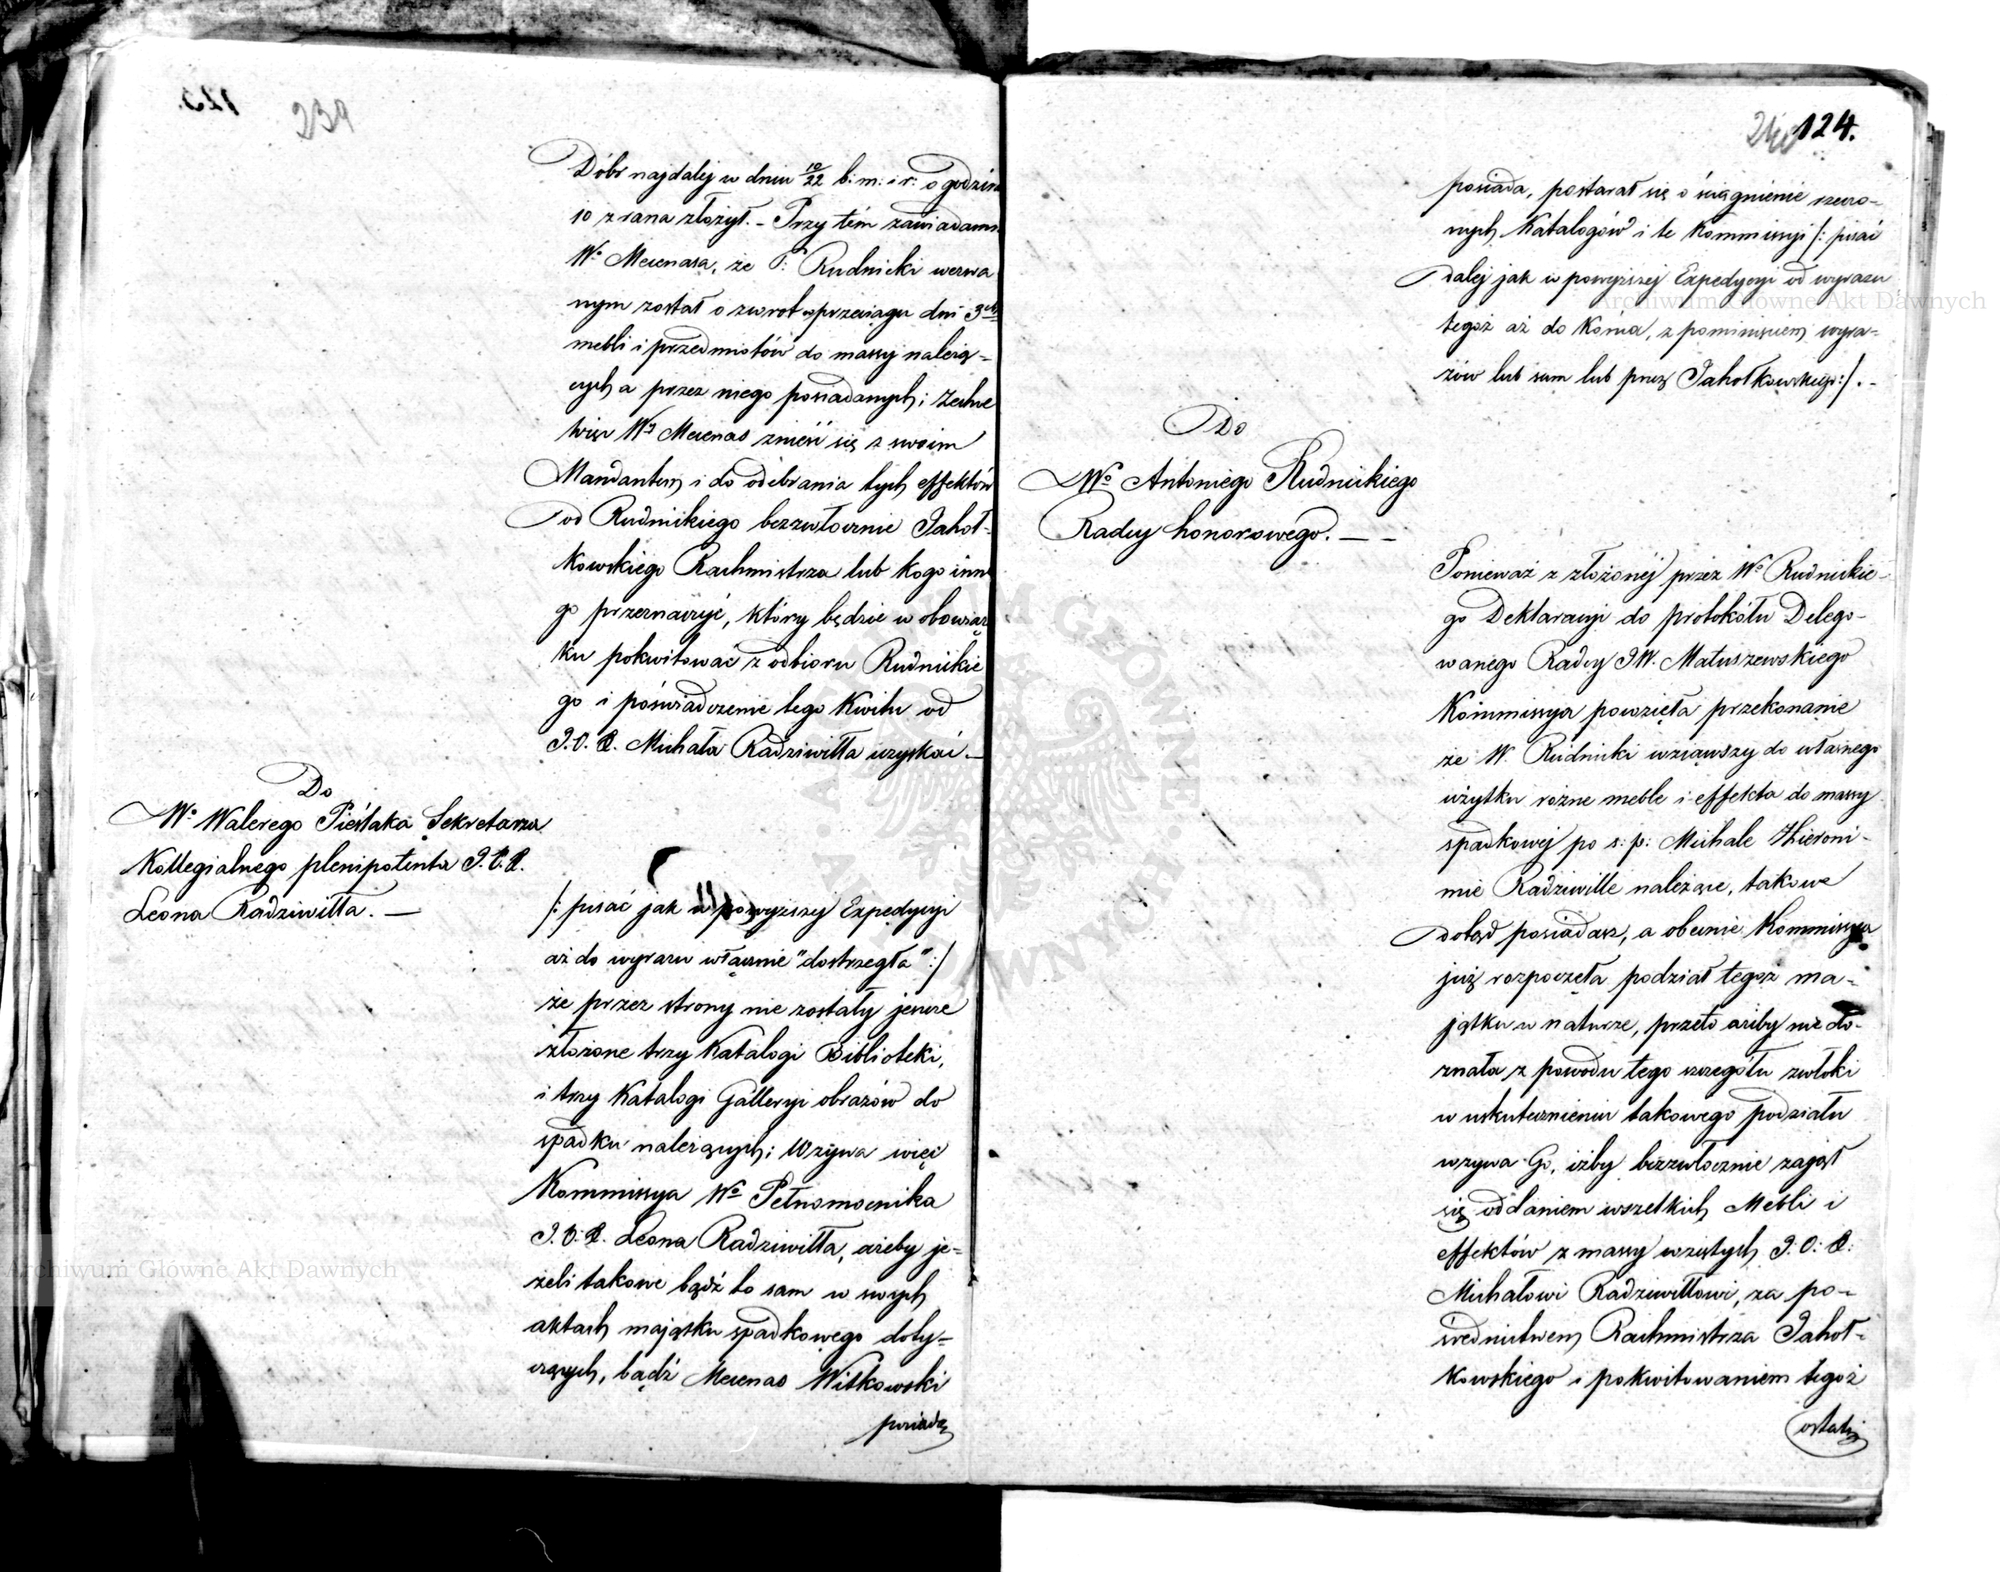 239
Dóbr najdalej w dniu 10/22 b: m: i r: o godzin
10 z rana złożył. – Przy tém zawiadamia
Wo Mecenasa, że P: Rudnicki wezwa
nym został o zwrot w przeciągu dni 3ch
mebli i przedmiotów do massy należą-
cych a przez niego posiadanych; Zechce
więc Wy Mecenas znieść się z swoim
Mandantem i do odebrania tych effektów
od Rudnickiego bezzwłocznie Jahoł-
kowskiego Rachmistrza lub kogo inne
go przeznaczyć, który będzie w obowiąz
ku pokwitować z odbioru Rudnickie
go i poświadczenie tego Kwitu od
J.O.X. Michała Radziwiłła uzyskać. –
Do
Wo Walerego Pieślaka Sekretarza
Kollegialnego plenipotenta J.O.X.
Leona Radziwiłła. —
/: pisać jak w powyższej Expedycyi
aż do wyrazu włącznie "dostrzegła" :/
że przez strony nie zostały jeszcze
złożone trzy Katalogi Biblioteki,
i trzy Katalogi Galleryi obrazów do
spadku należących; Wzywa więc
Kommissya Wo Pełnomocnika
J.O.X. Leona Radziwiłła, ażeby je-
żeli takowe bądź to sam w swych
aktach majątku spadkowego doty-
czących, bądź Mecenas Witkowski
posiada,
240 124.
posiada, postarał się o ściągnienie rzeczo-
nych Katalogów i te Kommissyi /: pisać
dalej jak w powyższej Expedycyi od wyrazu
tegoż aż do Końca, z pominięciem wyra-
zów lub sam lub przez Jahołkowskiego :/. –
Do
Wo Antoniego Rudnickiego
Radcy honorowego. — –
Ponieważ z złożonéj przez Wo Rudnickie-
go Deklaracyi do protokółu Delego-
wanego Radcy JW. Matuszewskiego
Kommissya powzięła przekonanie
że W. Rudnicki wziąwszy do własnego
użytku różne meble i effekta do massy
spadkowej po s: p: Michale Hieroni-
mie Radziwille należące, takowe
dotąd posiadasz, a obecnie Kommissya
już rozpoczęła podział tegoż ma-
jątku w naturze, przeto ażeby nie do-
znała z powodu tego szczegółu zwłoki
w uskutecznieniu takowego podziału
wzywa Go, iżby bezzwłocznie zajął
się oddaniem wszelkich Mebli i
effektów z massy wziętych J: O: X:
Michałowi Radziwiłłowi, za po-
średnictwem Rachmistrza Jahoł-
kowskiego i pokwitowaniem tegoż
Archiwum Główne Akt Dawnych
Archiwum Główne Akt Dawnych